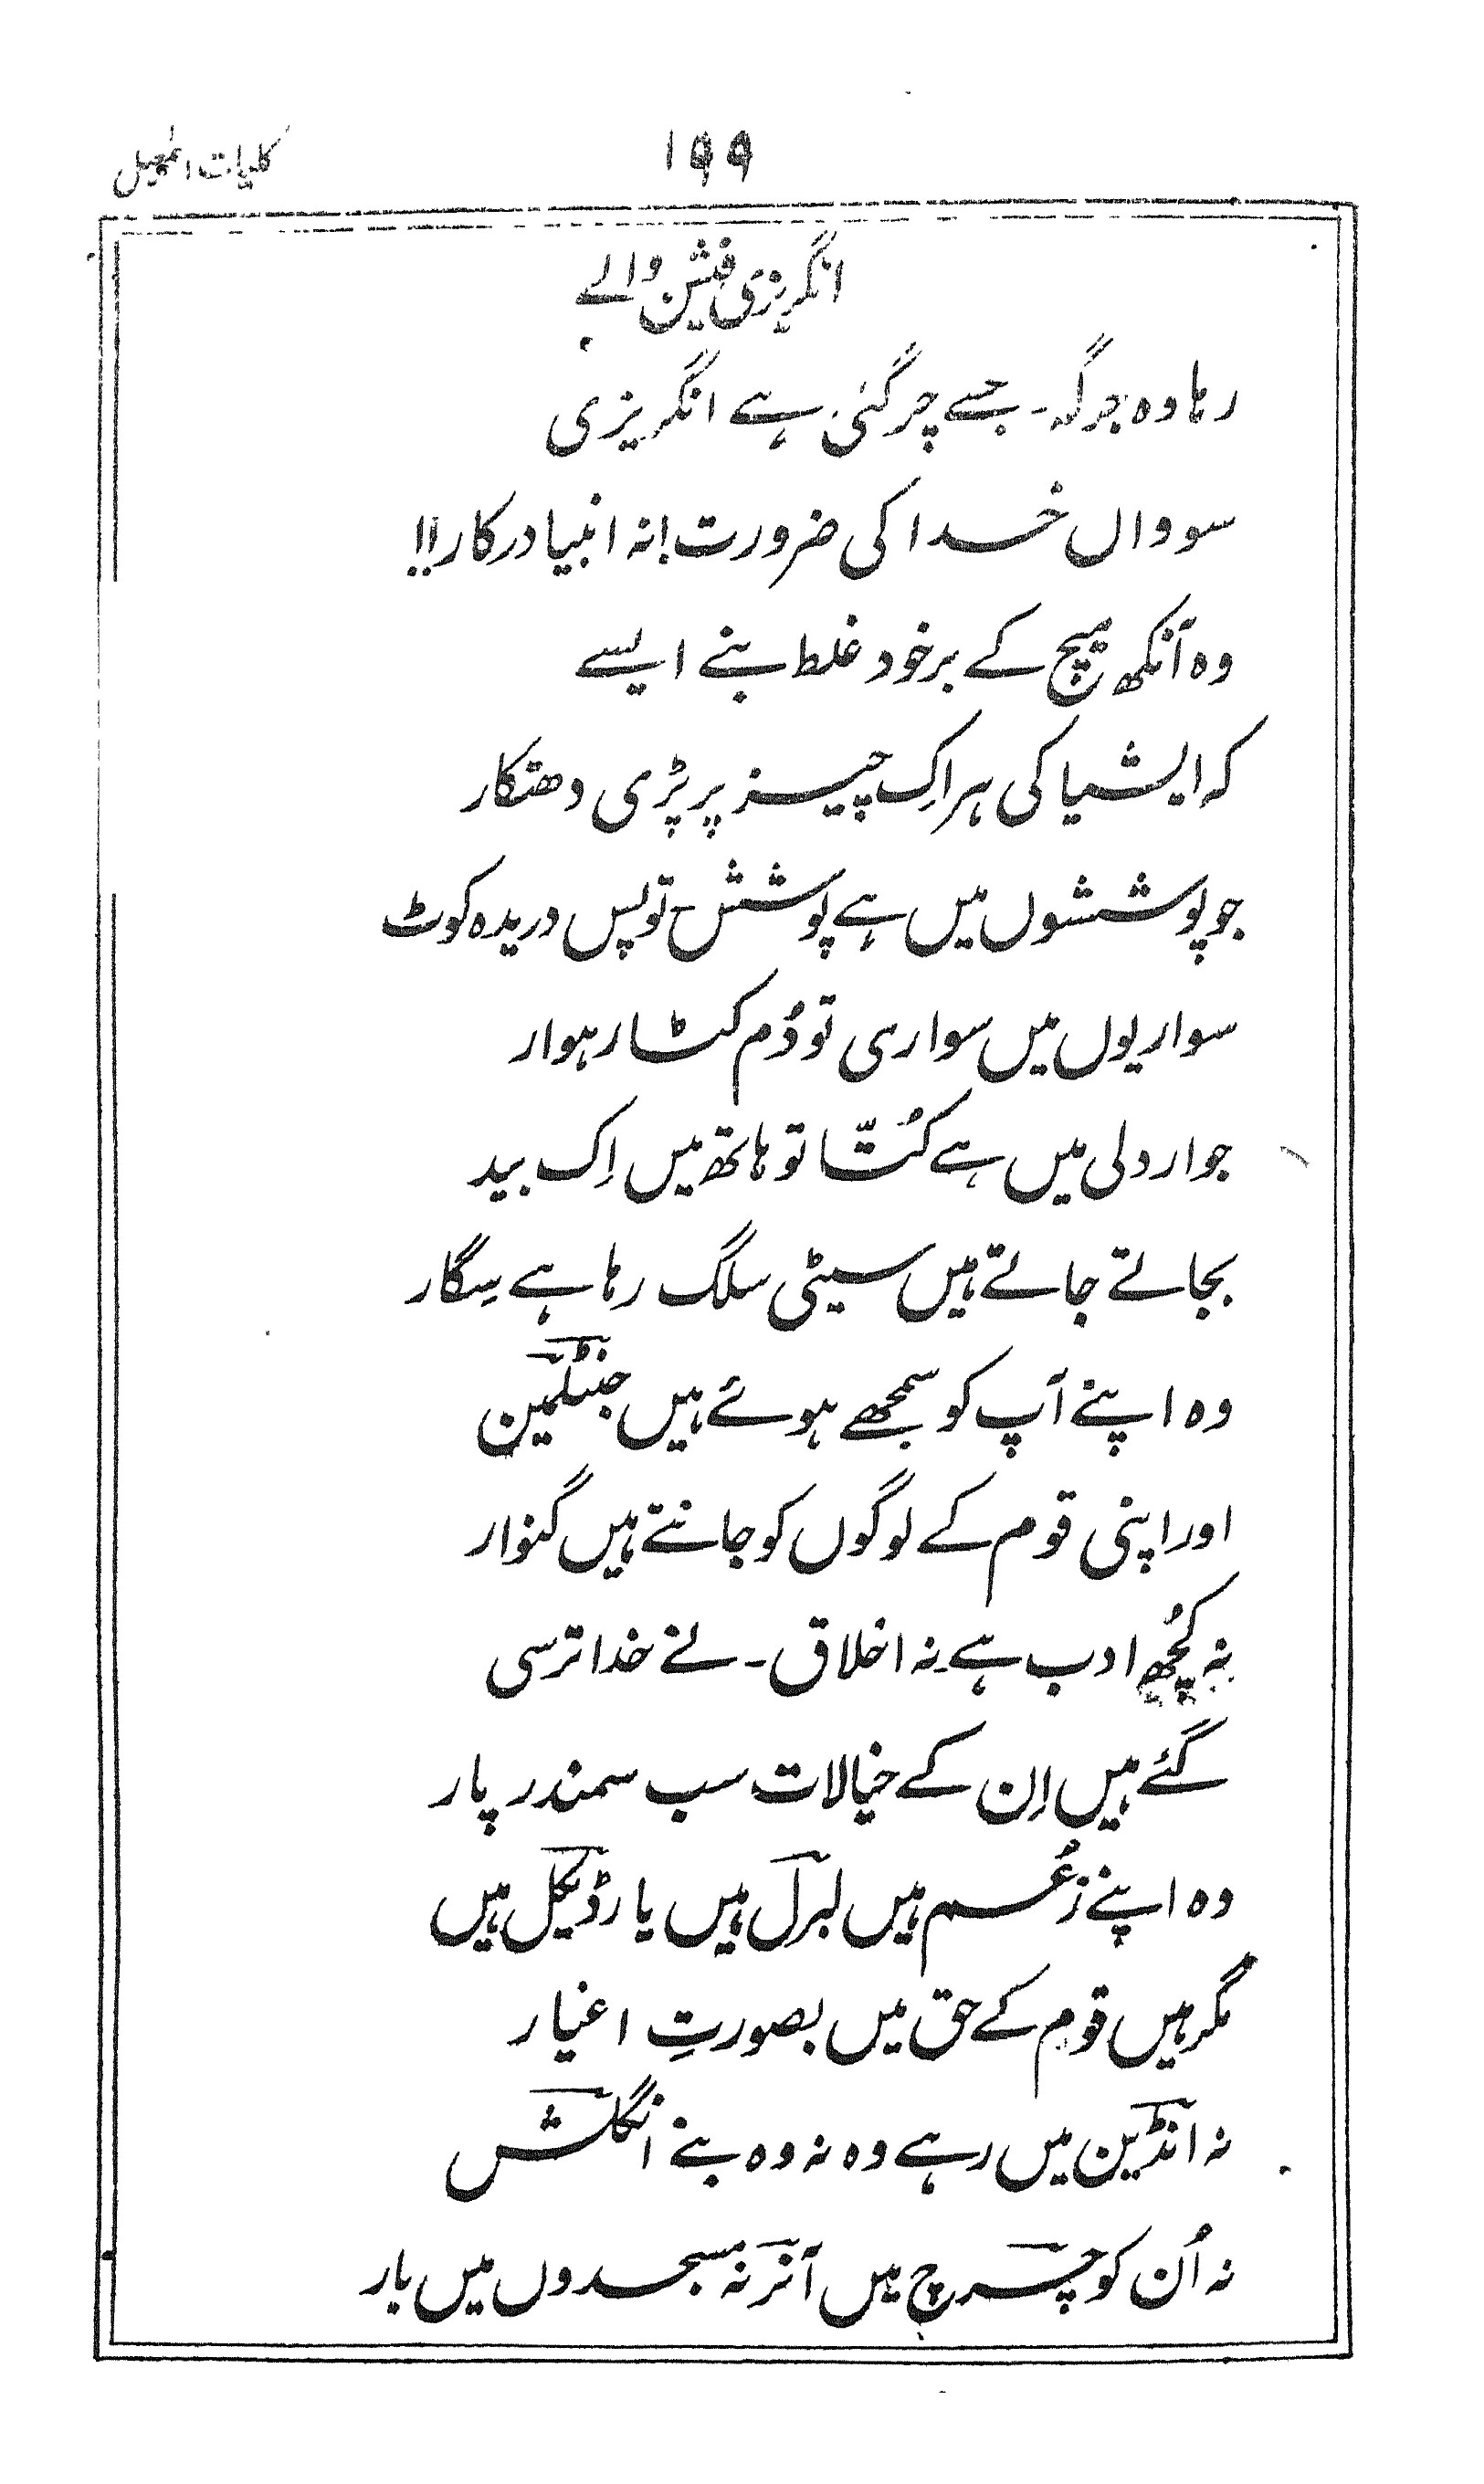 کلیات اسمٰعیل
۱۹۹
انگریزی فیشن والے
رہا وہ جرگہ۔ جسے چر گئی ہے انگریزی
سو واں خدا کی ضرورت! نہ انبیا درکار!!
وہ آنکھ میچ کے برخود غلط بنے ایسے
کہ ایشیا کی ہر اِک چیز پر پڑی دھتکار
جو پوششوں میں ہے پوشش تو پس دریدہ کوٹ
سواریوں میں سواری تو دُم کٹا رہوار
جو اردلی میں ہے کُتّا تو ہاتھ میں اِک بید
بجاتے جاتے ہیں سیٹی سلگ رہا ہے سِگار
وہ اپنے آپ کو سمجھے ہوئے ہیں جنٹلمین
اور اپنی قوم کے لوگوں کو جانتے ہیں گنوار
نہ کُچھ ادب ہے۔ نہ اخلاق۔ نے خدا ترسی
گئے ہیں اِن کے خیالات سب سمندر پار
وہ اپنے زُعم ہیں لبرل ہیں یا رڈیکل ہیں
مگر ہیں قوم کے حق میں بصورتِ اغیار
نہ انڈین میں رہے وہ نہ وہ بنے انگلش
نہ اُن کو چرچ میں آنر نہ مسجدوں میں بار